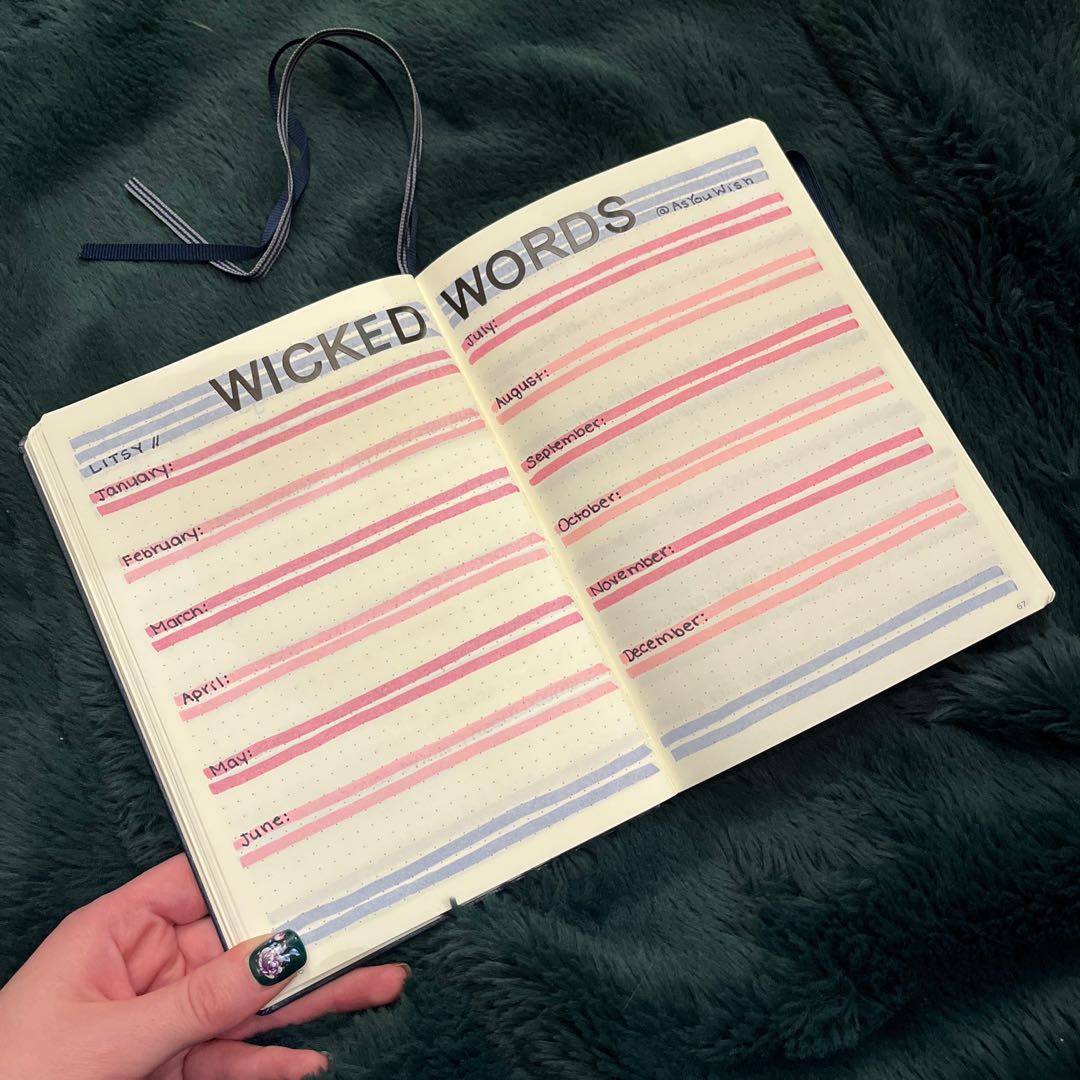 WICKED WORDS
LITSY //
@AsYouWish
January:
February:
March:
April:
May:
June:
July:
August:
September:
October:
November:
December:
67